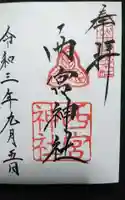 奉拝
西宮神社
令和三年九月五日